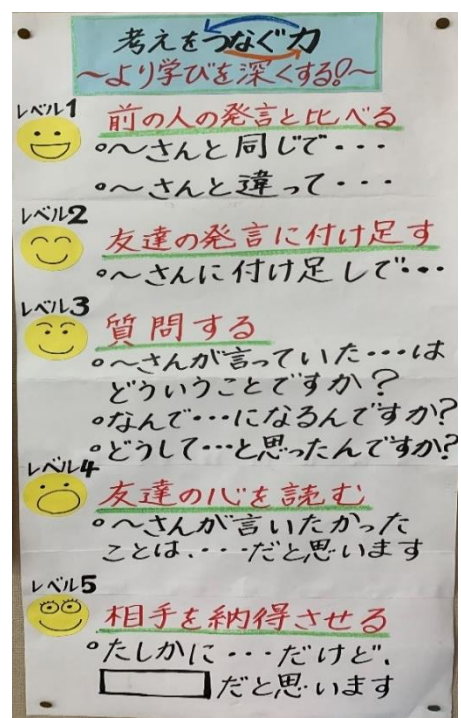 考えをつなぐ力
～より学びを深くする!～
レベル1
前の人の発言と比べる
○～さんと同じで・・・
○～さんと違って・・・
レベル2
友達の発言に付け足す
○～さんに付け足しで・・・
レベル3
質問する
○～さんが言っていた・・・は
どういうことですか？
○なんで・・・になるんですか？
○どうして・・・と思ったんですか？
レベル4
友達の心を読む
○～さんが言いたかった
ことは、・・・だと思います
レベル5
相手を納得させる
○たしかに・・・だけど、
だと思います